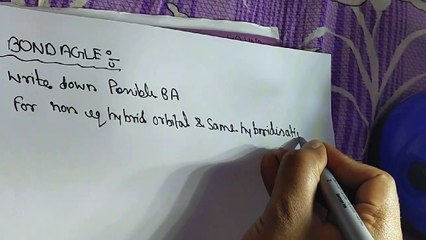 BOND AGLE :-
Write down Possible BA
for non eq hybrid orbital & same hybridisati